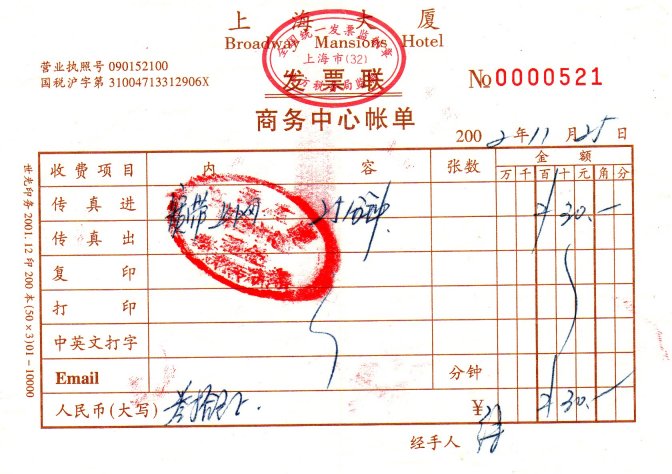 上海大厦
Broadway Mansions Hotel
全国统一发票监制章
上海市(32)
营业执照号 090152100
国税沪字第 31004713312906X
发票联
№0000521
商务中心帐单
2002年11月25日
收费项目 内容 张数 金额
万千百十元角分
传真进 宽带上网 分钟 30.—
传真出
复印
打印
中英文打字
Email 分钟
人民币(大写) 叁拾元 ¥ 30.—
经手人
世光印务 2001.12 印 200 本(50×3)01-10000